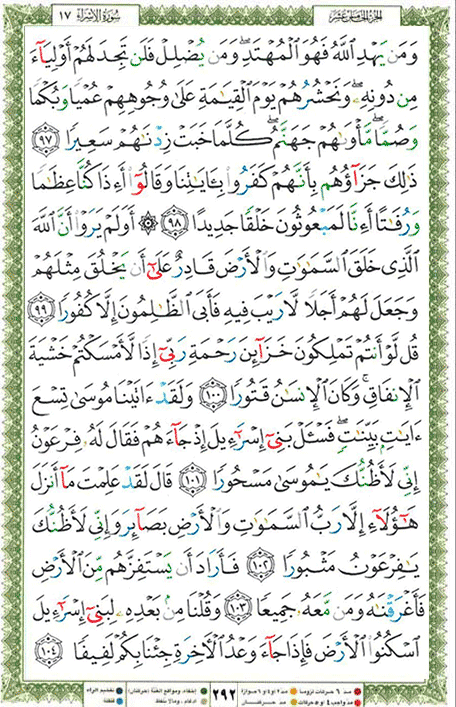 الجزء الخامس عشر
سورة الإسراء ١٧
وَمَن يَهْدِ ٱللَّهُ فَهُوَ ٱلْمُهْتَدِ ۖ وَمَن يُضْلِلْ فَلَن تَجِدَ لَهُمْ أَوْلِيَآءَ
مِن دُونِهِۦ ۖ وَنَحْشُرُهُمْ يَوْمَ ٱلْقِيَٰمَةِ عَلَىٰ وُجُوهِهِمْ عُمْيًا وَبُكْمًا
وَصُمًّا ۖ مَّأْوَىٰهُمْ جَهَنَّمُ ۖ كُلَّمَا خَبَتْ زِدْنَٰهُمْ سَعِيرًا ٩٧
ذَٰلِكَ جَزَآؤُهُم بِأَنَّهُمْ كَفَرُوا۟ بِـَٔايَٰتِنَا وَقَالُوٓا۟ أَءِذَا كُنَّا عِظَٰمًا
وَرُفَٰتًا أَءِنَّا لَمَبْعُوثُونَ خَلْقًا جَدِيدًا ٩٨ ۞ أَوَلَمْ يَرَوْا۟ أَنَّ ٱللَّهَ
ٱلَّذِى خَلَقَ ٱلسَّمَٰوَٰتِ وَٱلْأَرْضَ قَادِرٌ عَلَىٰٓ أَن يَخْلُقَ مِثْلَهُمْ
وَجَعَلَ لَهُمْ أَجَلًا لَّا رَيْبَ فِيهِ فَأَبَى ٱلظَّٰلِمُونَ إِلَّا كُفُورًا ٩٩
قُل لَّوْ أَنتُمْ تَمْلِكُونَ خَزَآئِنَ رَحْمَةِ رَبِّىٓ إِذًا لَّأَمْسَكْتُمْ خَشْيَةَ
ٱلْإِنفَاقِ ۚ وَكَانَ ٱلْإِنسَٰنُ قَتُورًا ١٠٠ وَلَقَدْ ءَاتَيْنَا مُوسَىٰ تِسْعَ
ءَايَٰتٍۭ بَيِّنَٰتٍ ۖ فَسْـَٔلْ بَنِىٓ إِسْرَٰٓءِيلَ إِذْ جَآءَهُمْ فَقَالَ لَهُۥ فِرْعَوْنُ
إِنِّى لَأَظُنُّكَ يَٰمُوسَىٰ مَسْحُورًا ١٠١ قَالَ لَقَدْ عَلِمْتَ مَآ أَنزَلَ
هَٰٓؤُلَآءِ إِلَّا رَبُّ ٱلسَّمَٰوَٰتِ وَٱلْأَرْضِ بَصَآئِرَ وَإِنِّى لَأَظُنُّكَ
يَٰفِرْعَوْنُ مَثْبُورًا ١٠٢ فَأَرَادَ أَن يَسْتَفِزَّهُم مِّنَ ٱلْأَرْضِ
فَأَغْرَقْنَٰهُ وَمَن مَّعَهُۥ جَمِيعًا ١٠٣ وَقُلْنَا مِنۢ بَعْدِهِۦ لِبَنِىٓ إِسْرَٰٓءِيلَ
ٱسْكُنُوا۟ ٱلْأَرْضَ فَإِذَا جَآءَ وَعْدُ ٱلْـَٔاخِرَةِ جِئْنَا بِكُمْ لَفِيفًا ١٠٤
مد ٦ حركات لزوماً مد ٢ أو ٤ أو ٦ جوازاً
مد واجب ٤ أو ٥ حركات مد حركتان
٢٩٢
إخفاء، ومواقع الغنة (حركتان) تفخيم الراء
إدغام، وما لا يلفظ قلقلة